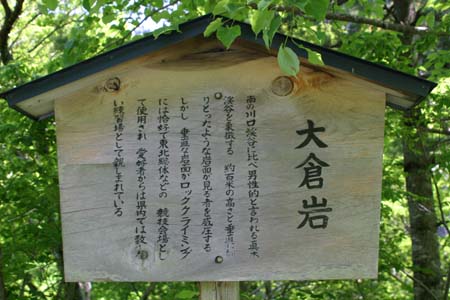 大倉岩
南の川口渓谷に比べ男性的と言われる真木
渓谷を象徴する 約百米の高さと垂直に
りとったような岩面が見る者を威圧する
しかし 垂直な岩面がロッククライミング
には恰好で東北総体などの 競技会場とし
て使用され 愛好者からは県内では数少な
い練習場として親しまれている